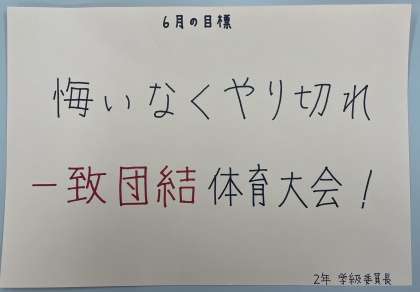 6月の目標
悔いなくやり切れ
一致団結体育大会！
2年 学級委員長